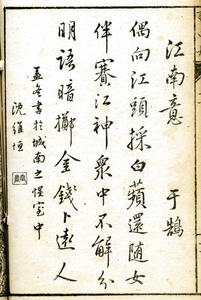 江南意 于鵠
偶向江頭採白蘋還隨女
伴賽江神衆中不解分
明語暗擲金錢卜遠人
孟冬書於城南之室中
沈維垣